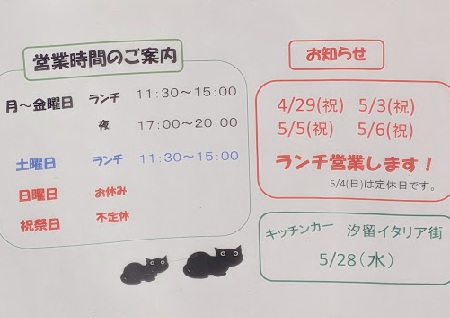 営業時間のご案内
月～金曜日 ランチ 11:30～15:00
夜 17:00～20:00
土曜日 ランチ 11:30～15:00
日曜日 お休み
祝祭日 不定休
お知らせ
4/29(祝) 5/3(祝)
5/5(祝) 5/6(祝)
ランチ営業します！
5/4(日)は定休日です。
キッチンカー 汐留イタリア街
5/28(水)